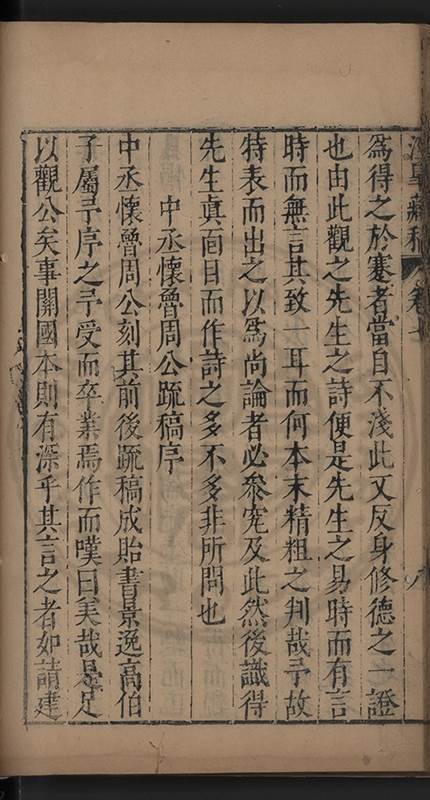 涇臯藏稿 卷七
爲得之於蹇者當自不淺此又反身修德之一證
也由此觀之先生之詩便是先生之易時而有言
時而無言其致一耳而何本末精粗之判哉予故
特表而出之以爲尚論者必叅究及此然後識得
先生眞面目而作詩之多不多非所問也
中丞懷魯周公疏稿序
中丞懷魯周公刻其前後疏稿成貽書景逸高伯
子屬予序之予受而卒業焉作而嘆曰美哉是足
以觀公矣事關國本則有深乎其言之者如請建